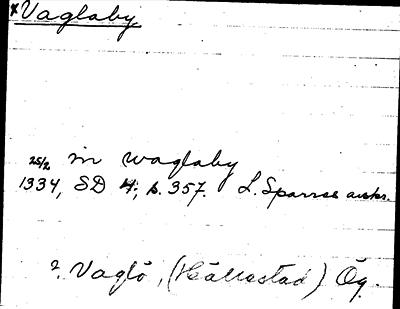 *Vaglaby
25/2 in waglaby
1334, SD 4; s. 357. L. Sparres avskr.
? Vaglö, (Hällestad) Ög.